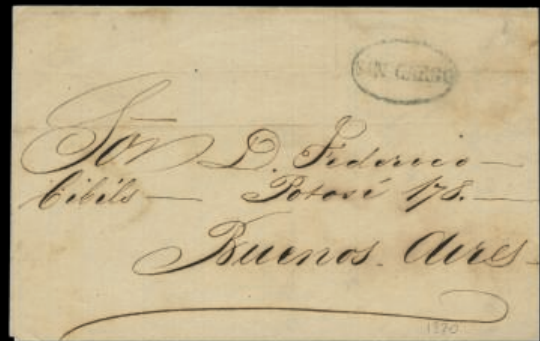 SIN CARGO
Sor D. Federico
Cibils Potosí 178.
Buenos Aires
1870